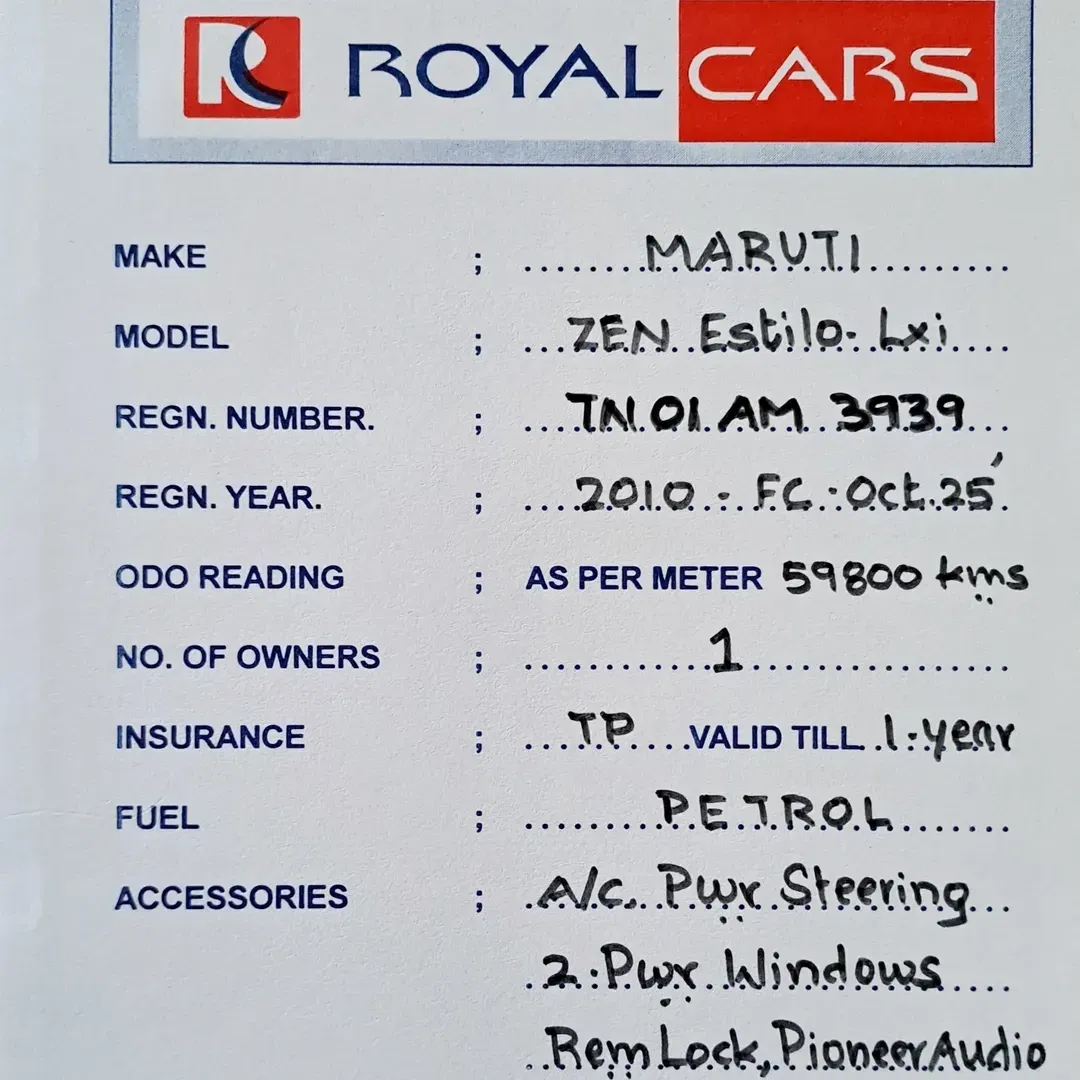 R ROYAL CARS
MAKE ; MARUTI
MODEL ; ZEN Estilo- Lxi
REGN. NUMBER. ; TN 01 AM 3939
REGN. YEAR. ; 2010 - FC - Oct. 25'
ODO READING ; AS PER METER 59800 kms
NO. OF OWNERS ; 1
INSURANCE ; TP VALID TILL 1-year
FUEL ; PETROL
ACCESSORIES ; A/c, Pwr Steering
2 Pwr Windows
Rem Lock, Pioneer Audio